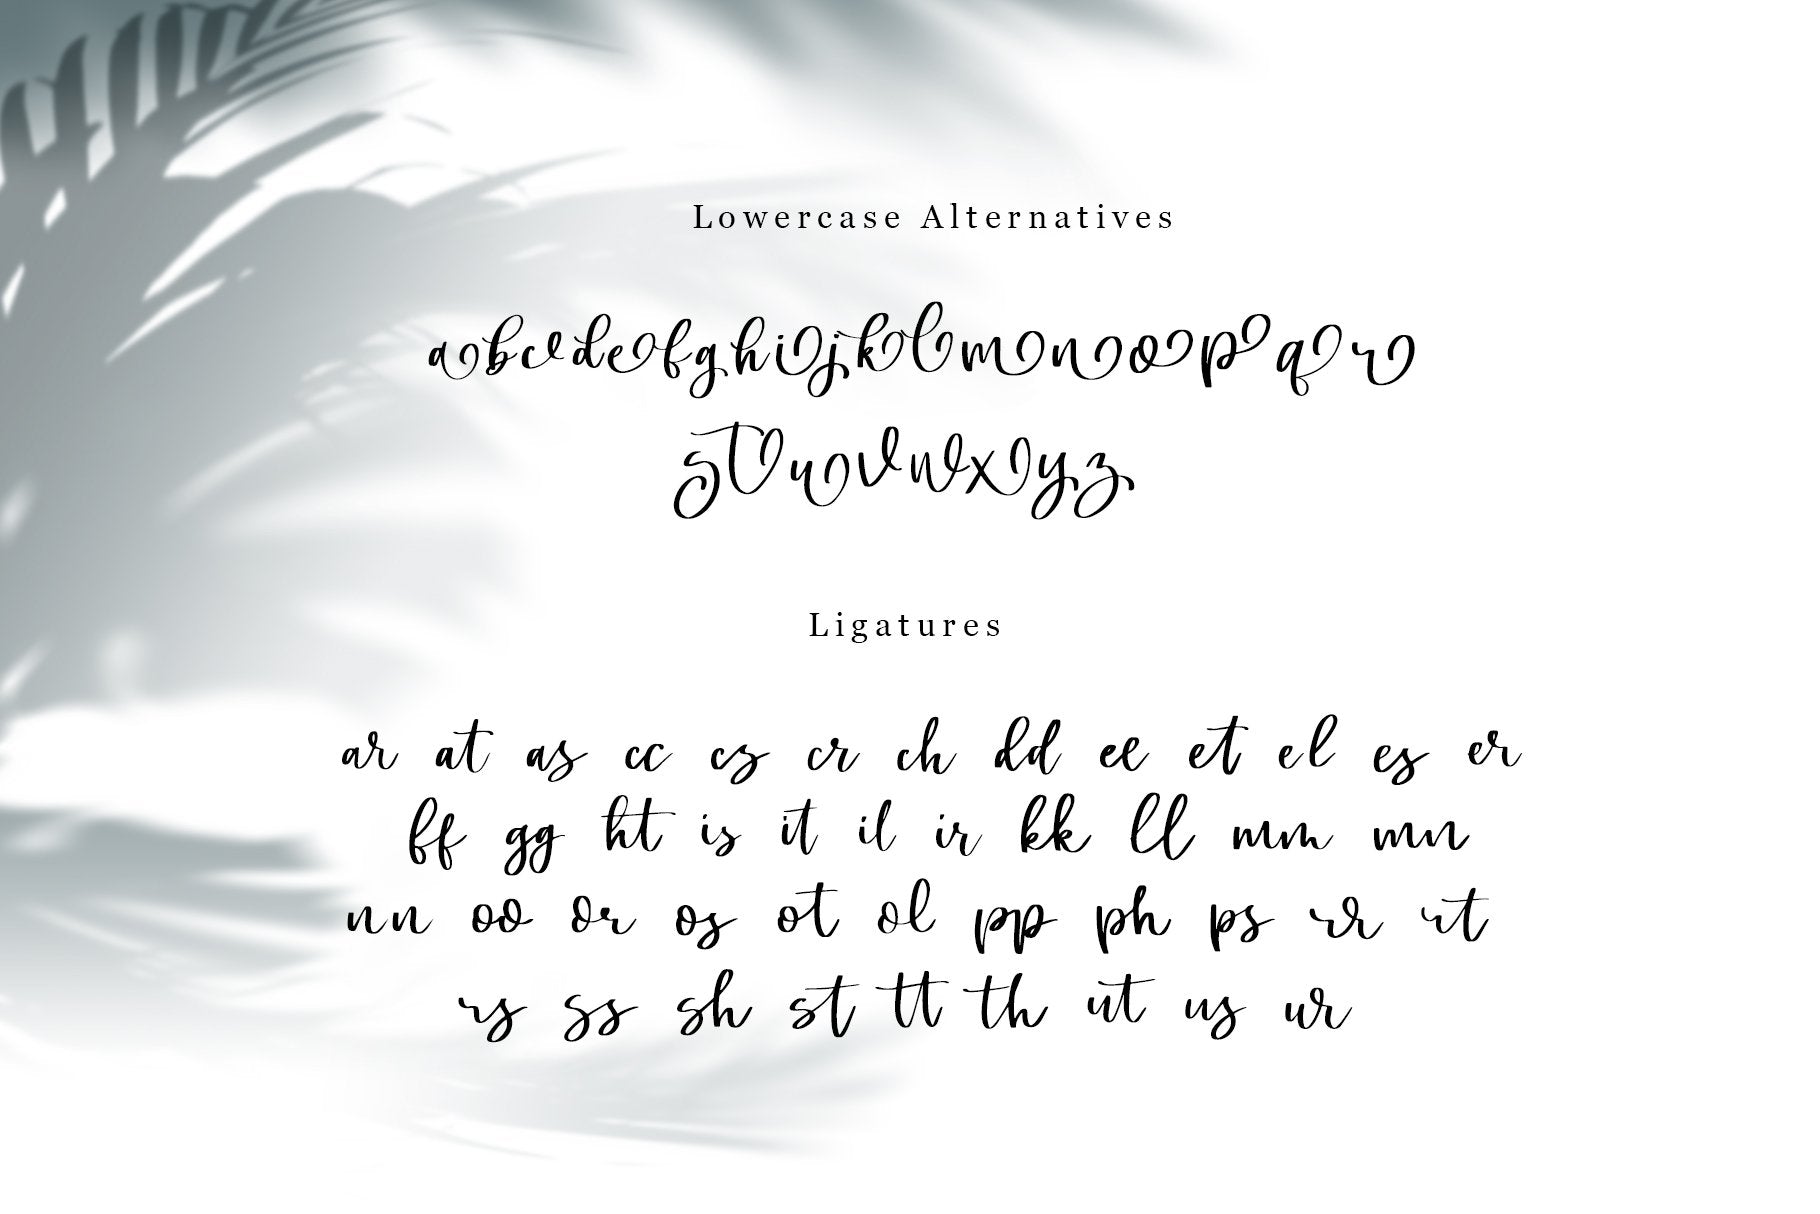 Lowercase Alternatives
abcdefghijklmnopqr
stuvwxyz
Ligatures
ar at as cc cs cr ch dd ee et el es er
ff gg ht is it il ir kk ll mm mn
nn oo or os ot ol pp ph ps rr rt
rs ss sh st tt th ut us ur